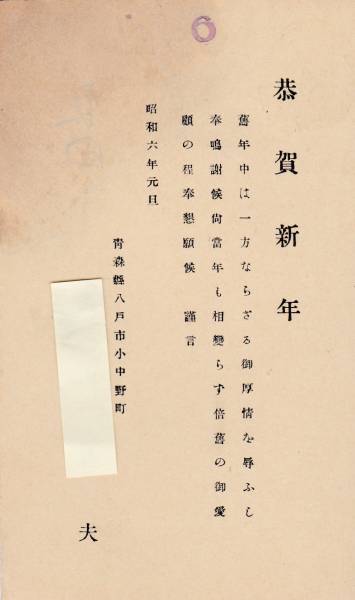 6
恭賀新年
舊年中は一方ならざる御厚情を辱ふし
奉鳴謝候尚當年も相變らず倍舊の御愛
顧の程奉懇願候 謹言
昭和六年元旦
青森縣八戸市小中野町
夫